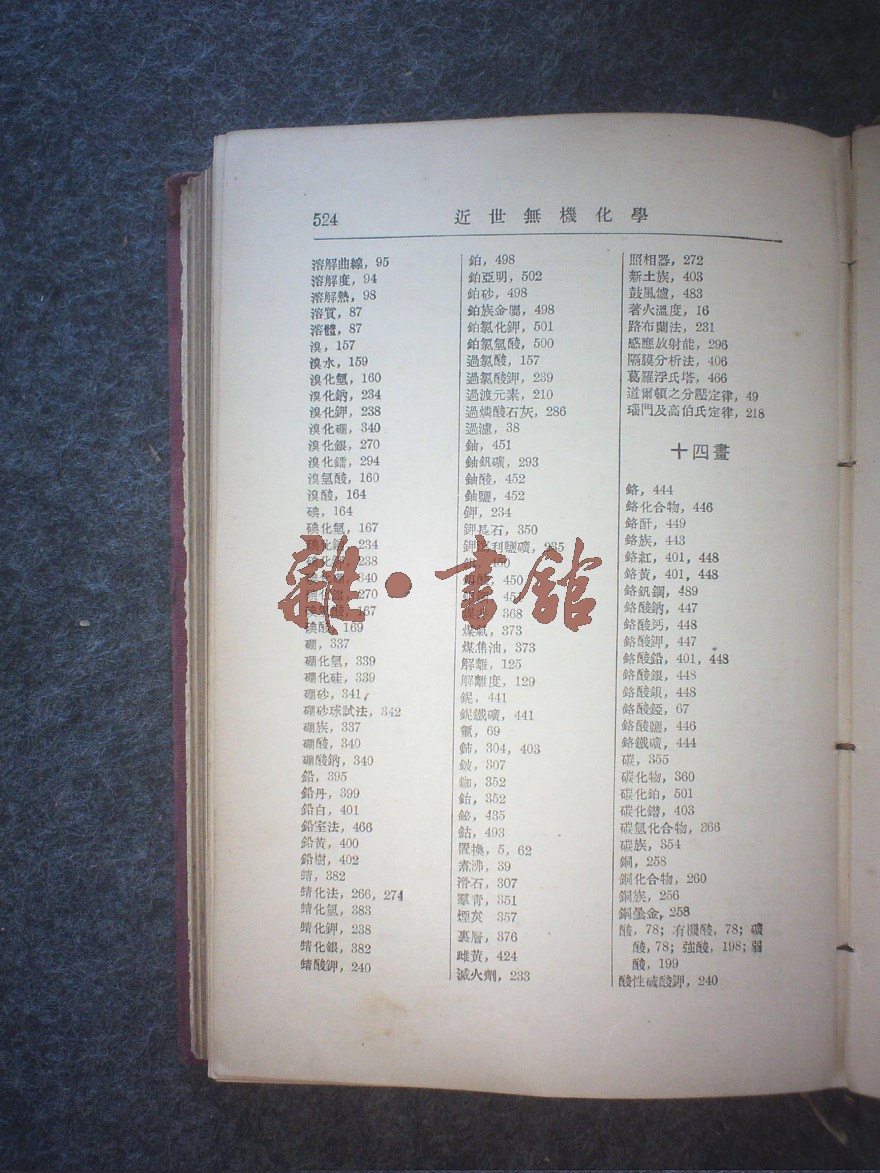 524
近世無機化學
溶解曲線，95
溶解度，94
溶解熱，98
溶質，87
溶體，87
溴，157
溴水，159
溴化氫，160
溴化鈉，234
溴化鉀，238
溴化硼，340
溴化銀，270
溴化鐳，294
溴氫酸，160
溴酸，164
碘，164
碘化氫，167
234
238
340
270
167
碘酸，169
硼，337
硼化氫，339
硼化硅，339
硼砂，341
硼砂球試法，342
硼族，337
硼酸，340
硼酸鈉，340
鉛，395
鉛丹，399
鉛白，401
鉛室法，466
鉛黃，400
鉛樹，402
蜻，382
蜻化法，266，274
蜻化氫，383
蜻化鉀，238
蜻化銀，382
蜻酸鉀，240
鉑，498
鉑亞明，502
鉑砂，498
鉑族金屬，498
鉑氯化鉀，501
鉑氯氫酸，500
過氯酸，157
過氯酸鉀，239
過渡元素，210
過燐酸石灰，286
過濾，38
鈾，451
鈾釩礦，293
鈾酸，452
鈾鹽，452
鉀，234
鉀長石，350
利鹽礦，235
450
450
368
煤氣，373
煤焦油，373
解離，125
解離度，129
鈮，441
鈮鐵礦，441
氭，69
鈰，304，403
鈹，307
鉫，352
鉿，352
鉍，435
鈷，493
置換，5，62
煮沸，39
滑石，307
羣青，351
煙炱 357
裏層，376
雌黃，424
滅火劑，233
照相器，272
新土族，403
鼓風爐，483
著火溫度，16
路布蘭法，231
感應放射能，296
隔膜分析法，406
葛羅浮氏塔，466
道爾頓之分壓定律，49
瑙門及高伯氏定律，218
十四畫
鉻，444
鉻化合物，446
鉻酐，449
鉻族，443
鉻紅，401，448
鉻黃，401，448
鉻釩鋼，489
鉻酸鈉，447
鉻酸鈣，448
鉻酸鉀，447
鉻酸鉛，401，448
鉻酸銀，448
鉻酸鋇，448
鉻酸錏，67
鉻酸鹽，446
鉻鐵礦，444
碳，355
碳化物，360
碳化鉑，501
碳化鐠，403
碳氫化合物，366
碳族，354
銅，258
銅化合物，260
銅族，256
銅墨金，258
酸，78；有機酸，78；礦
酸，78；強酸，198；弱
酸，199
酸性碱酸鉀，240
雜·書館